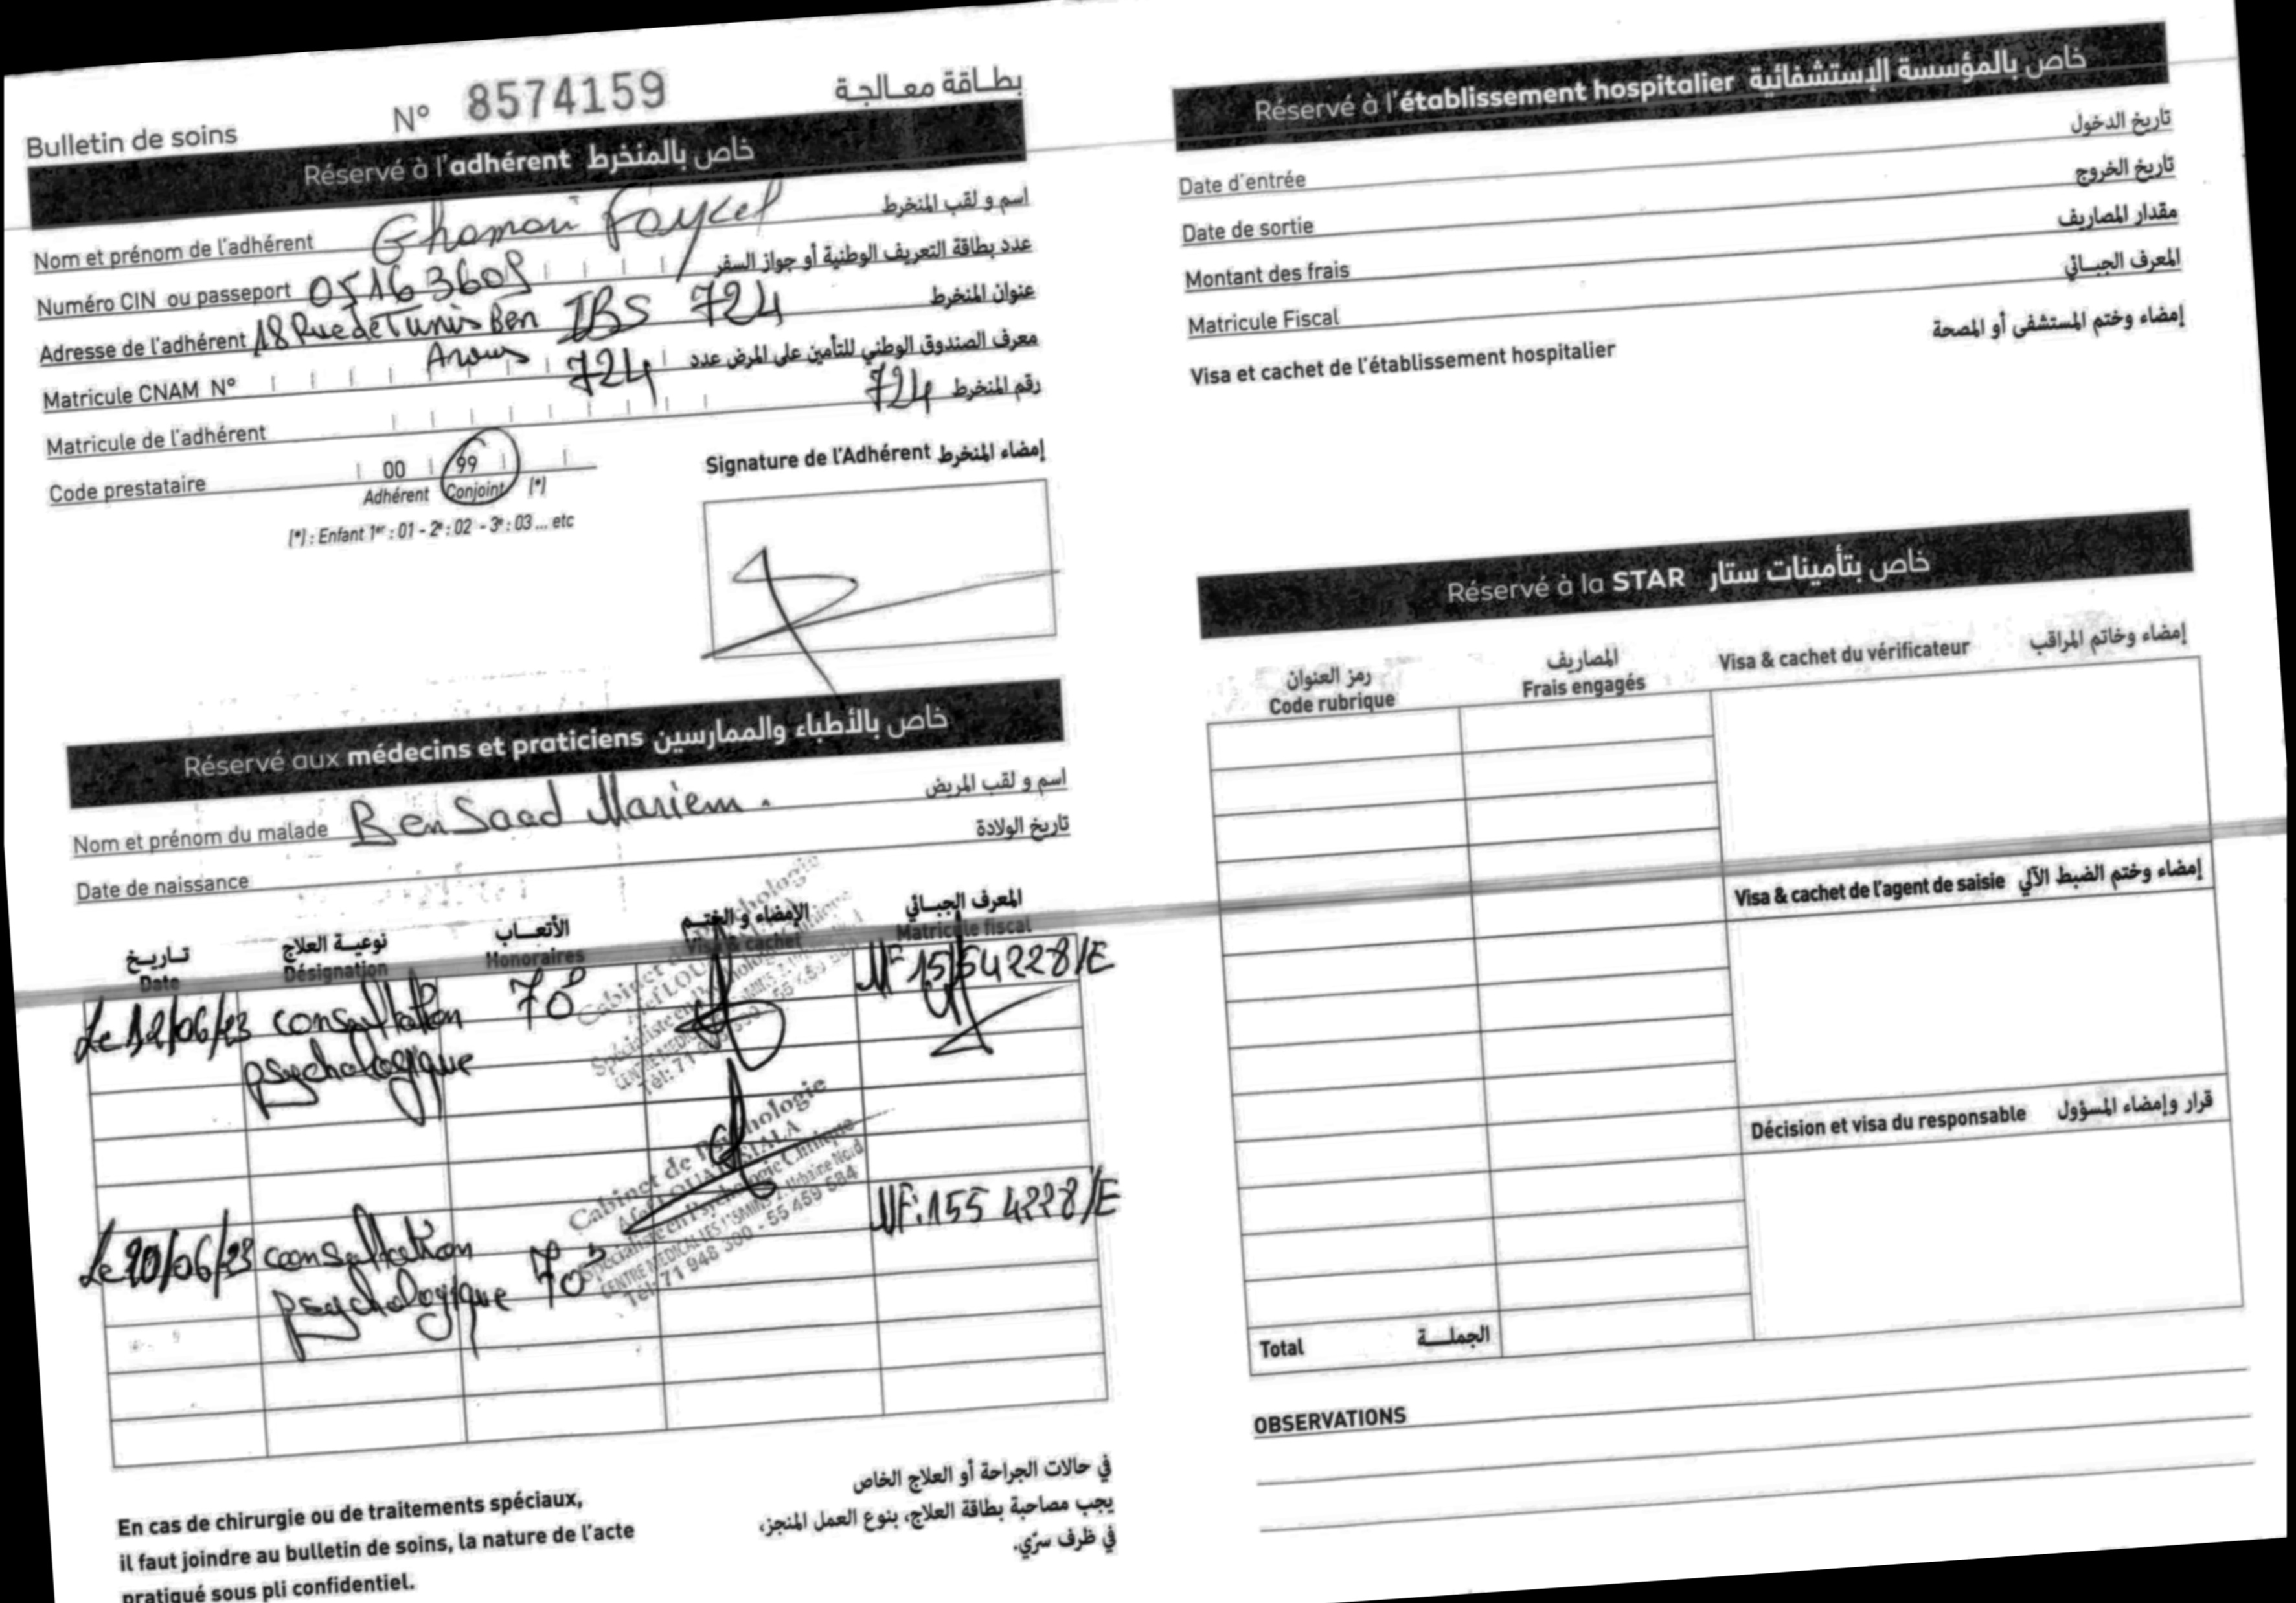 Bulletin de soins
N° 8574159
بطاقة معالجة
Réservé à l'adhérent خاص بالمنخرط
Nom et prénom de l'adhérent Ghamari Fayçel اسم و لقب المنخرط
Numéro CIN ou passeport 05163609 عدد بطاقة التعريف الوطنية أو جواز السفر
Adresse de l'adhérent 18 Rue de Tunis Ben IBS 724 عنوان المنخرط
Arous
Matricule CNAM N° 724 معرف الصندوق الوطني للتأمين على المرض عدد
Matricule de l'adhérent 724 رقم المنخرط
Code prestataire 00 99
Adhérent Conjoint (*)
(*) : Enfant 1er : 01 - 2e : 02 - 3e : 03 ... etc
Signature de l'Adhérent إمضاء المنخرط
Réservé aux médecins et praticiens خاص بالأطباء والممارسين
Nom et prénom du malade Ben Saad Mariem. اسم و لقب المريض
Date de naissance تاريخ الولادة
تاريخ نوعية العلاج الأتعاب الإمضاء و الختم المعرف الجبائي
Date Désignation Honoraires Visa & cachet Matricule fiscal
Le 12/06/23 consultation 70D MF 1554228/E
psychologique
Cabinet de Psychologie
Spécialiste en Psychologie Clinique
CENTRE MEDICAL LES JASMINS 2, Urbaine Nord
Tél: 71 948 300 - 55 459 584
Le 20/06/23 consultation 70D MF: 1554228/E
psychologique
En cas de chirurgie ou de traitements spéciaux,
il faut joindre au bulletin de soins, la nature de l'acte
pratiqué sous pli confidentiel.
في حالات الجراحة أو العلاج الخاص
يجب مصاحبة بطاقة العلاج، بنوع العمل المنجز،
في ظرف سرّي.
Réservé à l'établissement hospitalier خاص بالمؤسسة الإستشفائية
Date d'entrée تاريخ الدخول
Date de sortie تاريخ الخروج
Montant des frais مقدار المصاريف
Matricule Fiscal المعرف الجبائي
Visa et cachet de l'établissement hospitalier إمضاء وختم المستشفى أو المصحة
Réservé à la STAR خاص بتأمينات ستار
رمز العنوان المصاريف
Code rubrique Frais engagés Visa & cachet du vérificateur إمضاء وخاتم المراقب
Visa & cachet de l'agent de saisie إمضاء وختم الضبط الآلي
Décision et visa du responsable قرار وإمضاء المسؤول
Total الجملة
OBSERVATIONS